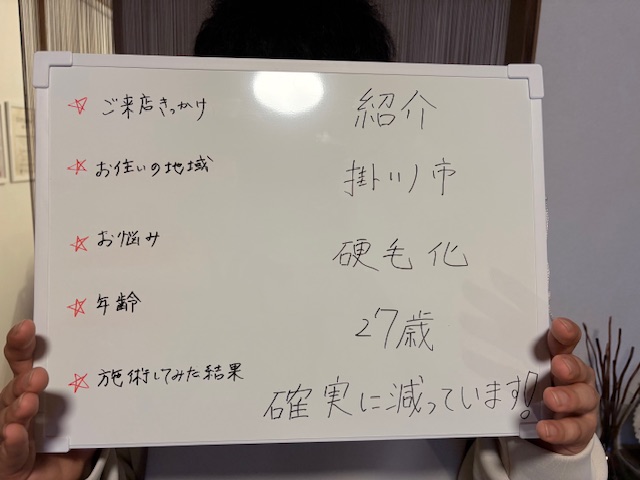 ☆ ご来店きっかけ 紹介
☆ お住いの地域 掛川市
☆ お悩み 硬毛化
☆ 年齢 27歳
☆ 施術してみた結果 確実に減っています!